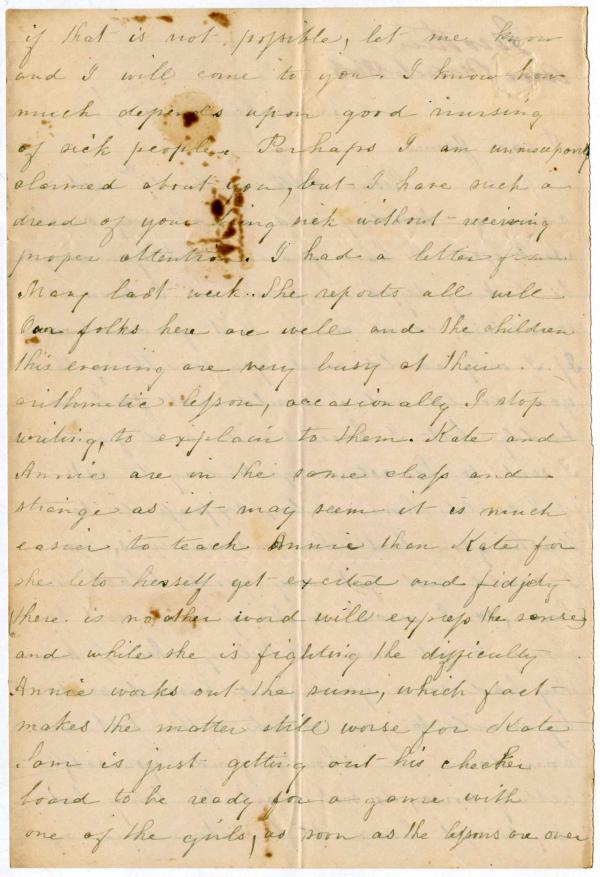 if that is not possible, let me know
and I will come to you. I know how
much depends upon good nursing
of sick people. Perhaps I am
alarmed about you, but I have such a
dread of your being sick without receiving
proper attention. I had a letter from
Mary last week. She reports all well
Our folks here are well and the children
this evening are very busy at their
arithmetic lesson, occasionally I stop
writing, to explain to them. Kate and
Annie are in the same class and
strange as it may seem it is much
easier to teach Annie than Kate for
she lets herself get excited and fidjety
(there is no other word will express the sense)
and while she is fighting the difficulty
Annie works out the sum, which fact
makes the matter still worse for Kate
Sam is just getting out his checker
board to be ready for a game with
one of the girls, as soon as the lessons are over